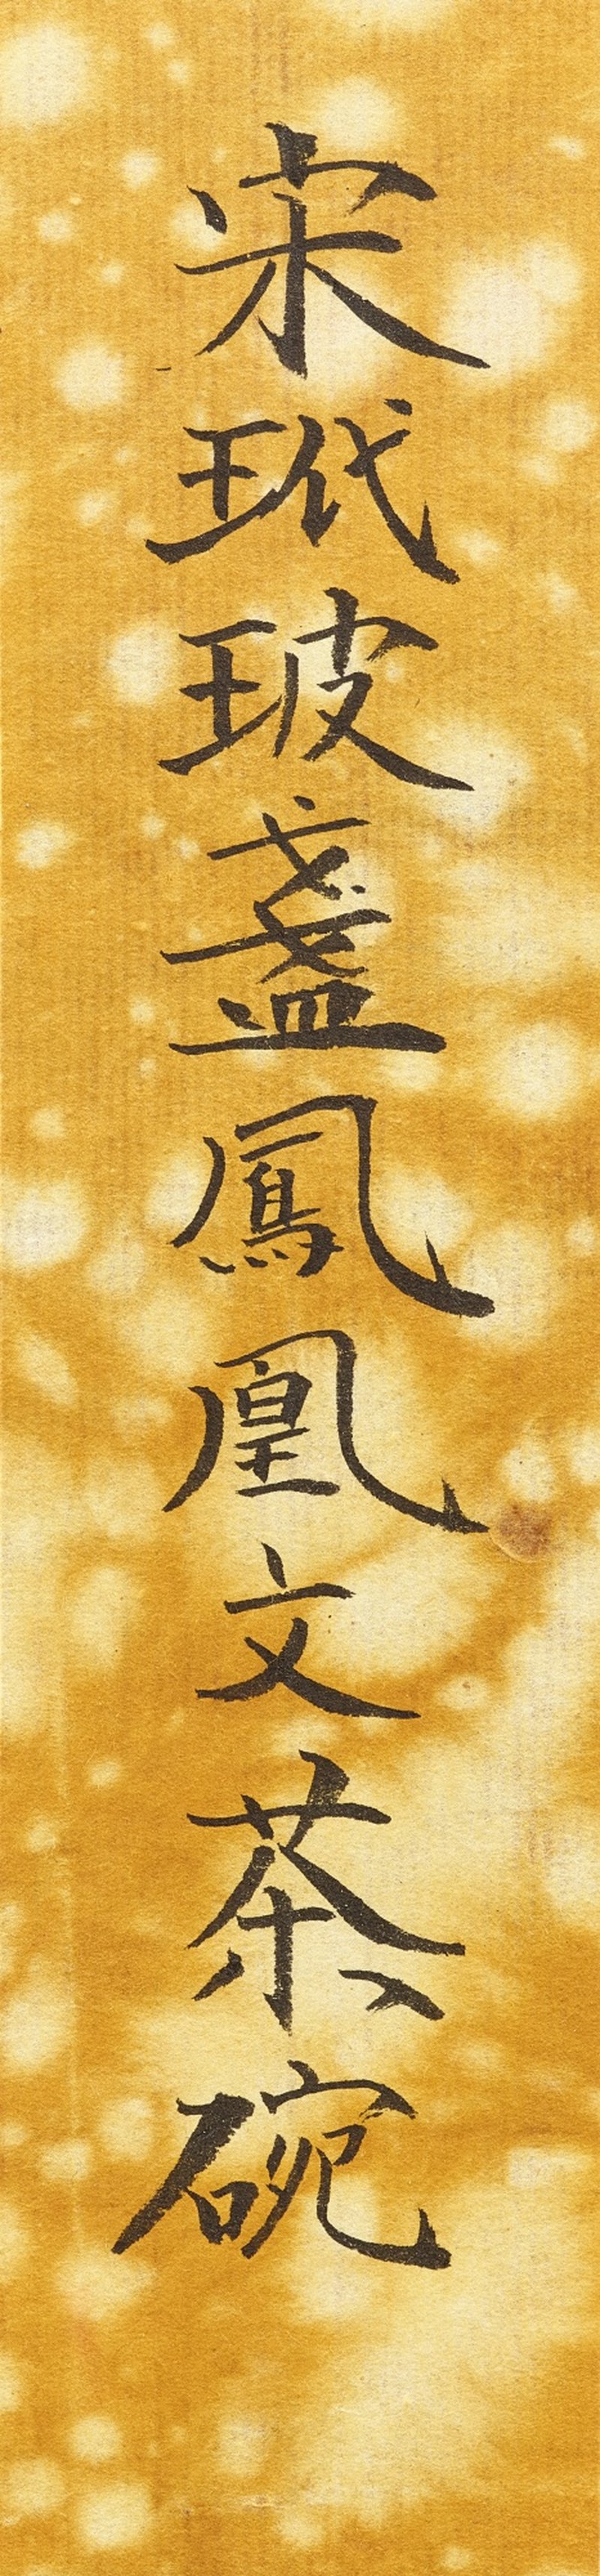 宋玳玻盞鳳凰文茶碗